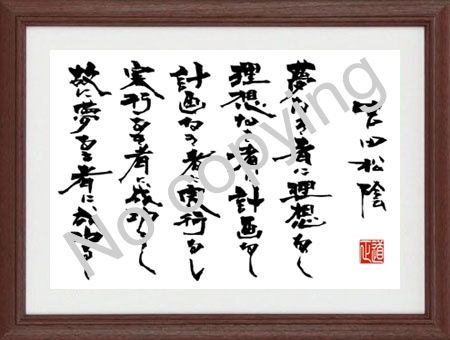 吉田松陰
夢なき者に理想なし
理想なき者に計画なし
計画なき者に実行なし
実行なき者に成功なし
故に夢なき者に成功なし
No copying